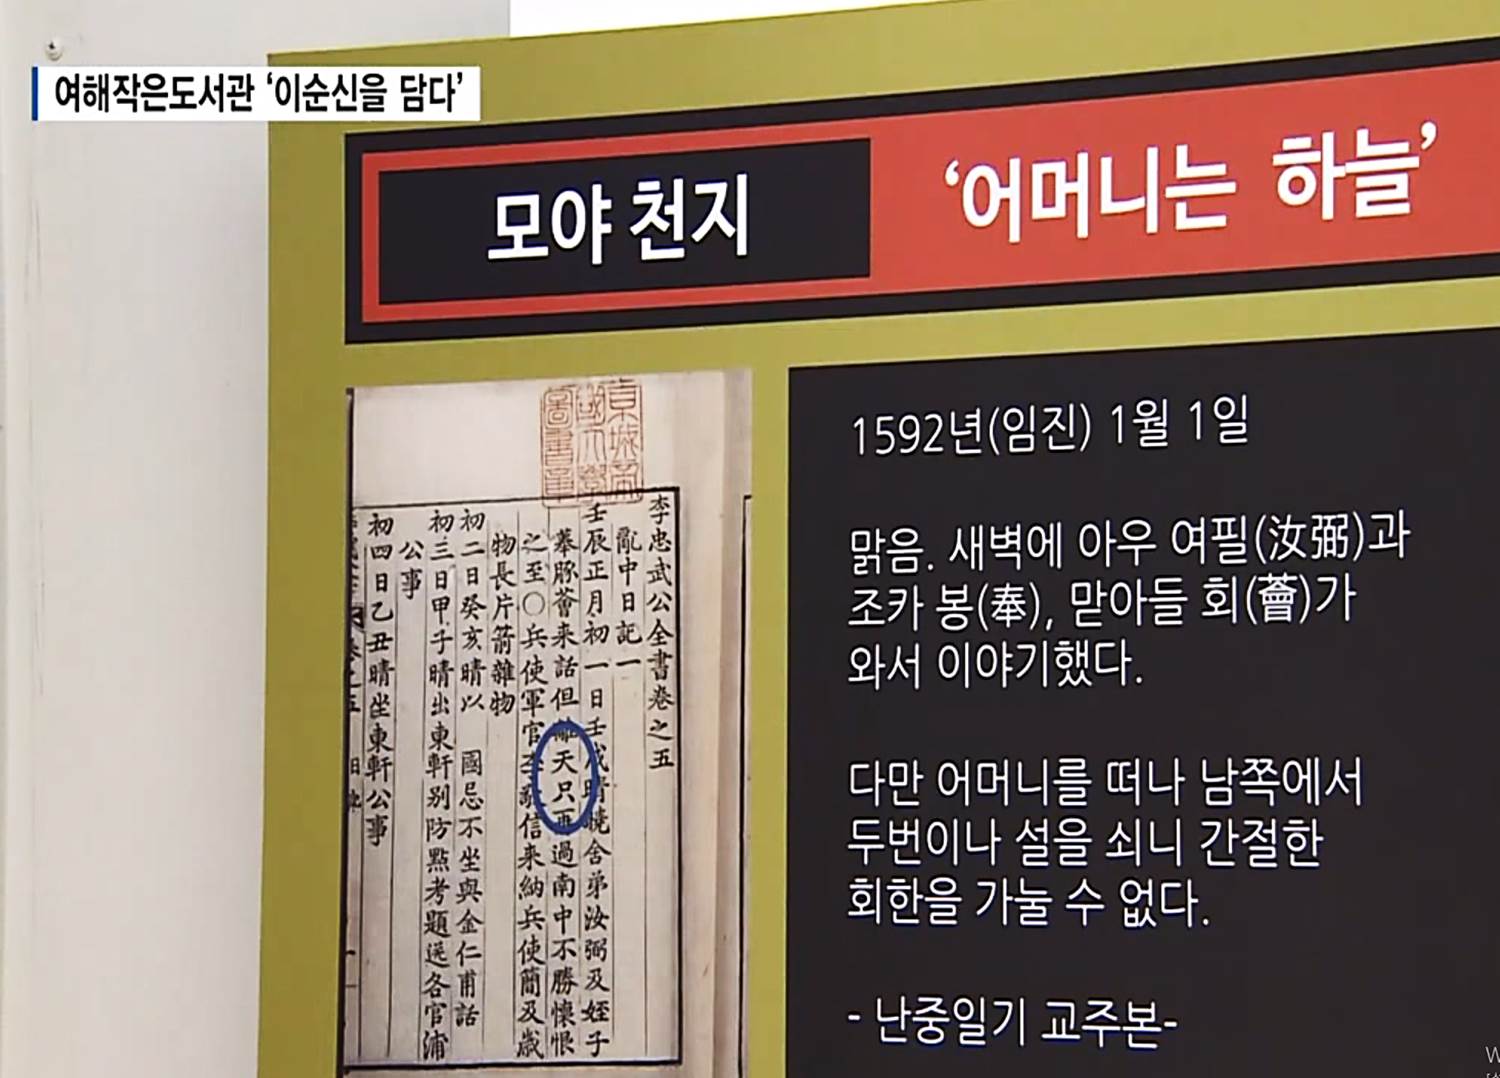 여해작은도서관 ‘이순신을 담다’
모야 천지
‘어머니는 하늘’
1592년(임진) 1월 1일
맑음. 새벽에 아우 여필(汝弼)과
조카 봉(奉), 맏아들 회(薈)가
와서 이야기했다.
다만 어머니를 떠나 남쪽에서
두번이나 설을 쇠니 간절한
회한을 가눌 수 없다.
- 난중일기 교주본-
李忠武公全書卷之五
亂中日記一
壬辰正月初一日壬戌晴曉舍弟汝弼及姪子
菶豚薈來話但離天只再過南中不勝懷恨
之至○兵使軍官李敬信來納兵使簡及歲
物長片箭雜物
初二日癸亥晴以 國忌不坐與金仁甫話
初三日甲子晴出東軒別防點考題送各官浦
公事
初四日乙丑晴坐東軒公事